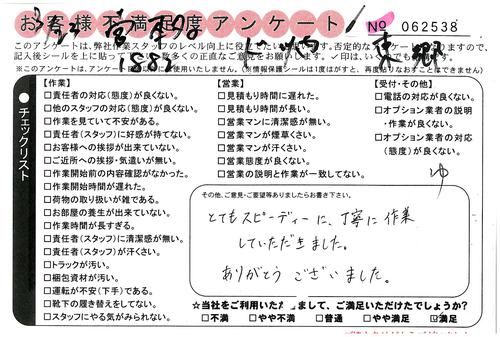 お客様不満足度アンケート No 062538
※このアンケートは、アンケート
【作業】
□責任者の対応(態度)が良くない。
□他のスタッフの対応(態度)が良くない。
□作業を見ていて不安がある。
□責任者(スタッフ)に好感が持てない。
□お客様への挨拶が出来ていない。
□ご近所への挨拶・気遣いが無い。
□作業開始前の内容確認がなかった。
□作業開始時間が遅れた。
□荷物の取り扱いが雑である。
□お部屋の養生が出来ていない。
□作業時間が長すぎる。
□責任者(スタッフ)に清潔感が無い。
□責任者(スタッフ)が汗くさい。
□トラックが汚い。
□梱包資材が汚い。
□運転が不安(下手)である。
□靴下の履き替えをしてない。
□スタッフにやる気がみられない。
チェックリスト
【営業】
□見積もり時間に遅れた。
□見積もり時間が長い。
□営業マンに清潔感が無い。
□営業マンが煙草くさい。
□営業マンが汗くさい。
□営業態度が良くない。
□営業の説明と作業が一致してない。
【受付・その他】
□電話の対応が良くない。
□オプション業者の説明
・作業が良くない。
□オプション業者の対応
(態度)が良くない。
ゆ
その他、ご意見・ご要望等ありましたらお書き下さい。
とてもスピーディーに、丁寧に作業
していただきました。
ありがとうございました。
☆当社をご利用いた まして、ご満足いただけたでしょうか?
□不満 □やや不満 □普通 □やや満足 ☑満足